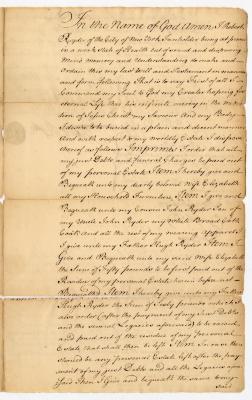 In the Name of God Amen I Robert
Ryder of the City of New York being at present
in a weak State of Health but of sound and disposing
Mind memory and Understanding do make and
Ordain this my last Will and Testament in manner
and form following That is to say First of all I
Commend my Soul to God my Creator hoping for
Eternal Life thro his infinite mercy in the
of Jesus Christ my Saviour And my Body I
to be buried in a plain and decent manner
And with respect to my worldly Estate I dispose
thereof as follows Imprimis I order that all
my just Debts and funeral Charges be paid out
of my personal Estate Item I hereby give and
Bequeath unto my dearly beloved wife Elizabeth
all my Household Furniture Item I give and
Bequeath unto my Cousin John Ryder Son of
my Uncle John Ryder my
Coat and all the rest of my wearing apparel
I give unto my Father Hugh Ryder Item I
Give and Bequeath unto my said Wife Elizabeth
the Sum of Fifty pounds to be first paid out of the
Residue of my personal Estate herein before
Item I hereby give unto my Father
Hugh Ryder the Sum of Fifty pounds which I
also order (after the payment of my Just Debts
and the several Legacies aforesaid) to be raised
and paid out of the residue of my personal
Estate that shall then be left Item In case there
should be any personal Estate left after the pay
ment of my just Debts and all the Legacies afore
said Then I give and bequeath the same
said